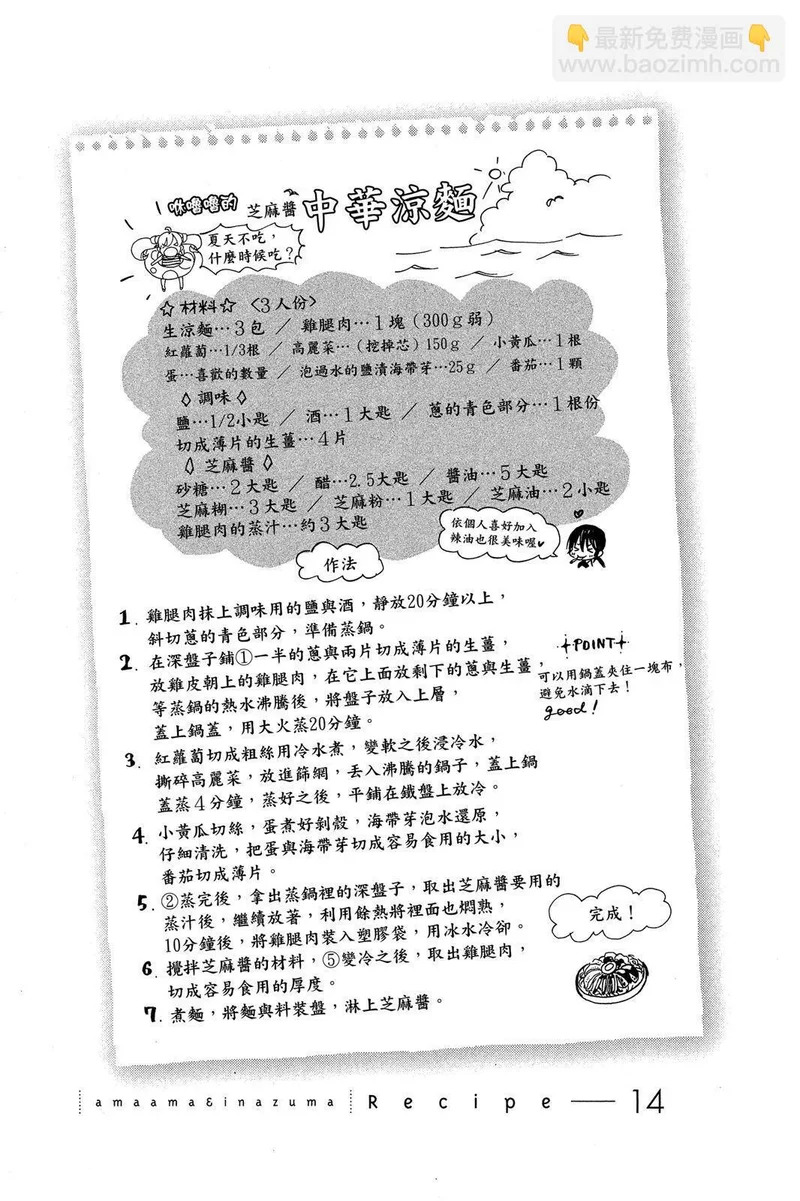 👇最新免费漫画👇
www.baozimh.com
咻嚕嚕的 芝麻醬 中華涼麵
夏天不吃，
什麼時候吃？
☆材料☆〈3人份〉
生涼麵…3包 ／ 雞腿肉…1塊（300g弱）
紅蘿蔔…1/3根 ／ 高麗菜…（挖掉芯）150g ／ 小黃瓜…1根
蛋…喜歡的數量 ／ 泡過水的鹽漬海帶芽…25g ／ 番茄…1顆
◊調味◊
鹽…1/2小匙 ／ 酒…1大匙 ／ 蔥的青色部分…1根份
切成薄片的生薑…4片
◊芝麻醬◊
砂糖…2大匙 ／ 醋…2.5大匙 ／ 醬油…5大匙
芝麻糊…3大匙 ／ 芝麻粉…1大匙 ／ 芝麻油…2小匙
雞腿肉的蒸汁…約3大匙
依個人喜好加入
辣油也很美味喔♥
作法
1. 雞腿肉抹上調味用的鹽與酒，靜放20分鐘以上，
斜切蔥的青色部分，準備蒸鍋。
2. 在深盤子鋪①一半的蔥與兩片切成薄片的生薑，
放雞皮朝上的雞腿肉，在它上面放剩下的蔥與生薑，
等蒸鍋的熱水沸騰後，將盤子放入上層，
蓋上鍋蓋，用大火蒸20分鐘。
POINT
可以用鍋蓋夾住一塊布，
避免水滴下去！
good!
3. 紅蘿蔔切成粗絲用冷水煮，變軟之後浸冷水，
撕碎高麗菜，放進篩網，丟入沸騰的鍋子，蓋上鍋
蓋蒸4分鐘，蒸好之後，平鋪在鐵盤上放冷。
4. 小黃瓜切絲，蛋煮好剝殼，海帶芽泡水還原，
仔細清洗，把蛋與海帶芽切成容易食用的大小，
番茄切成薄片。
5. ②蒸完後，拿出蒸鍋裡的深盤子，取出芝麻醬要用的
蒸汁後，繼續放著，利用餘熱將裡面也燜熟，
10分鐘後，將雞腿肉裝入塑膠袋，用冰水冷卻。
6. 攪拌芝麻醬的材料，⑤變冷之後，取出雞腿肉，
切成容易食用的厚度。
7. 煮麵，將麵與料裝盤，淋上芝麻醬。
完成！
amaama&inazuma Recipe — 14